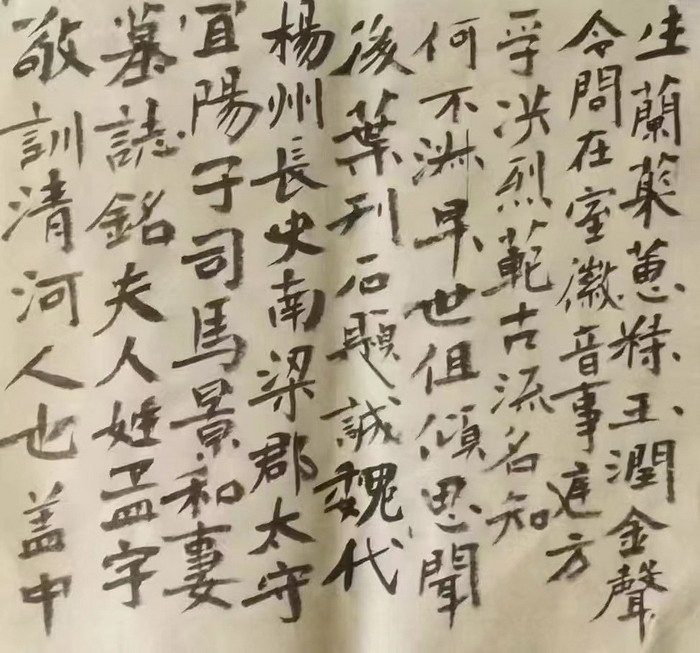 生蘭藂蕙糅玉潤金聲
令問在室徽音事庭方
孚洪烈範古流名知
何不淋早世徂傾思聞
後葉刊石題誠魏代
楊州長史南梁郡太守
宜陽子司馬景和妻
墓誌銘夫人姓孟字
敬訓清河人也盖中